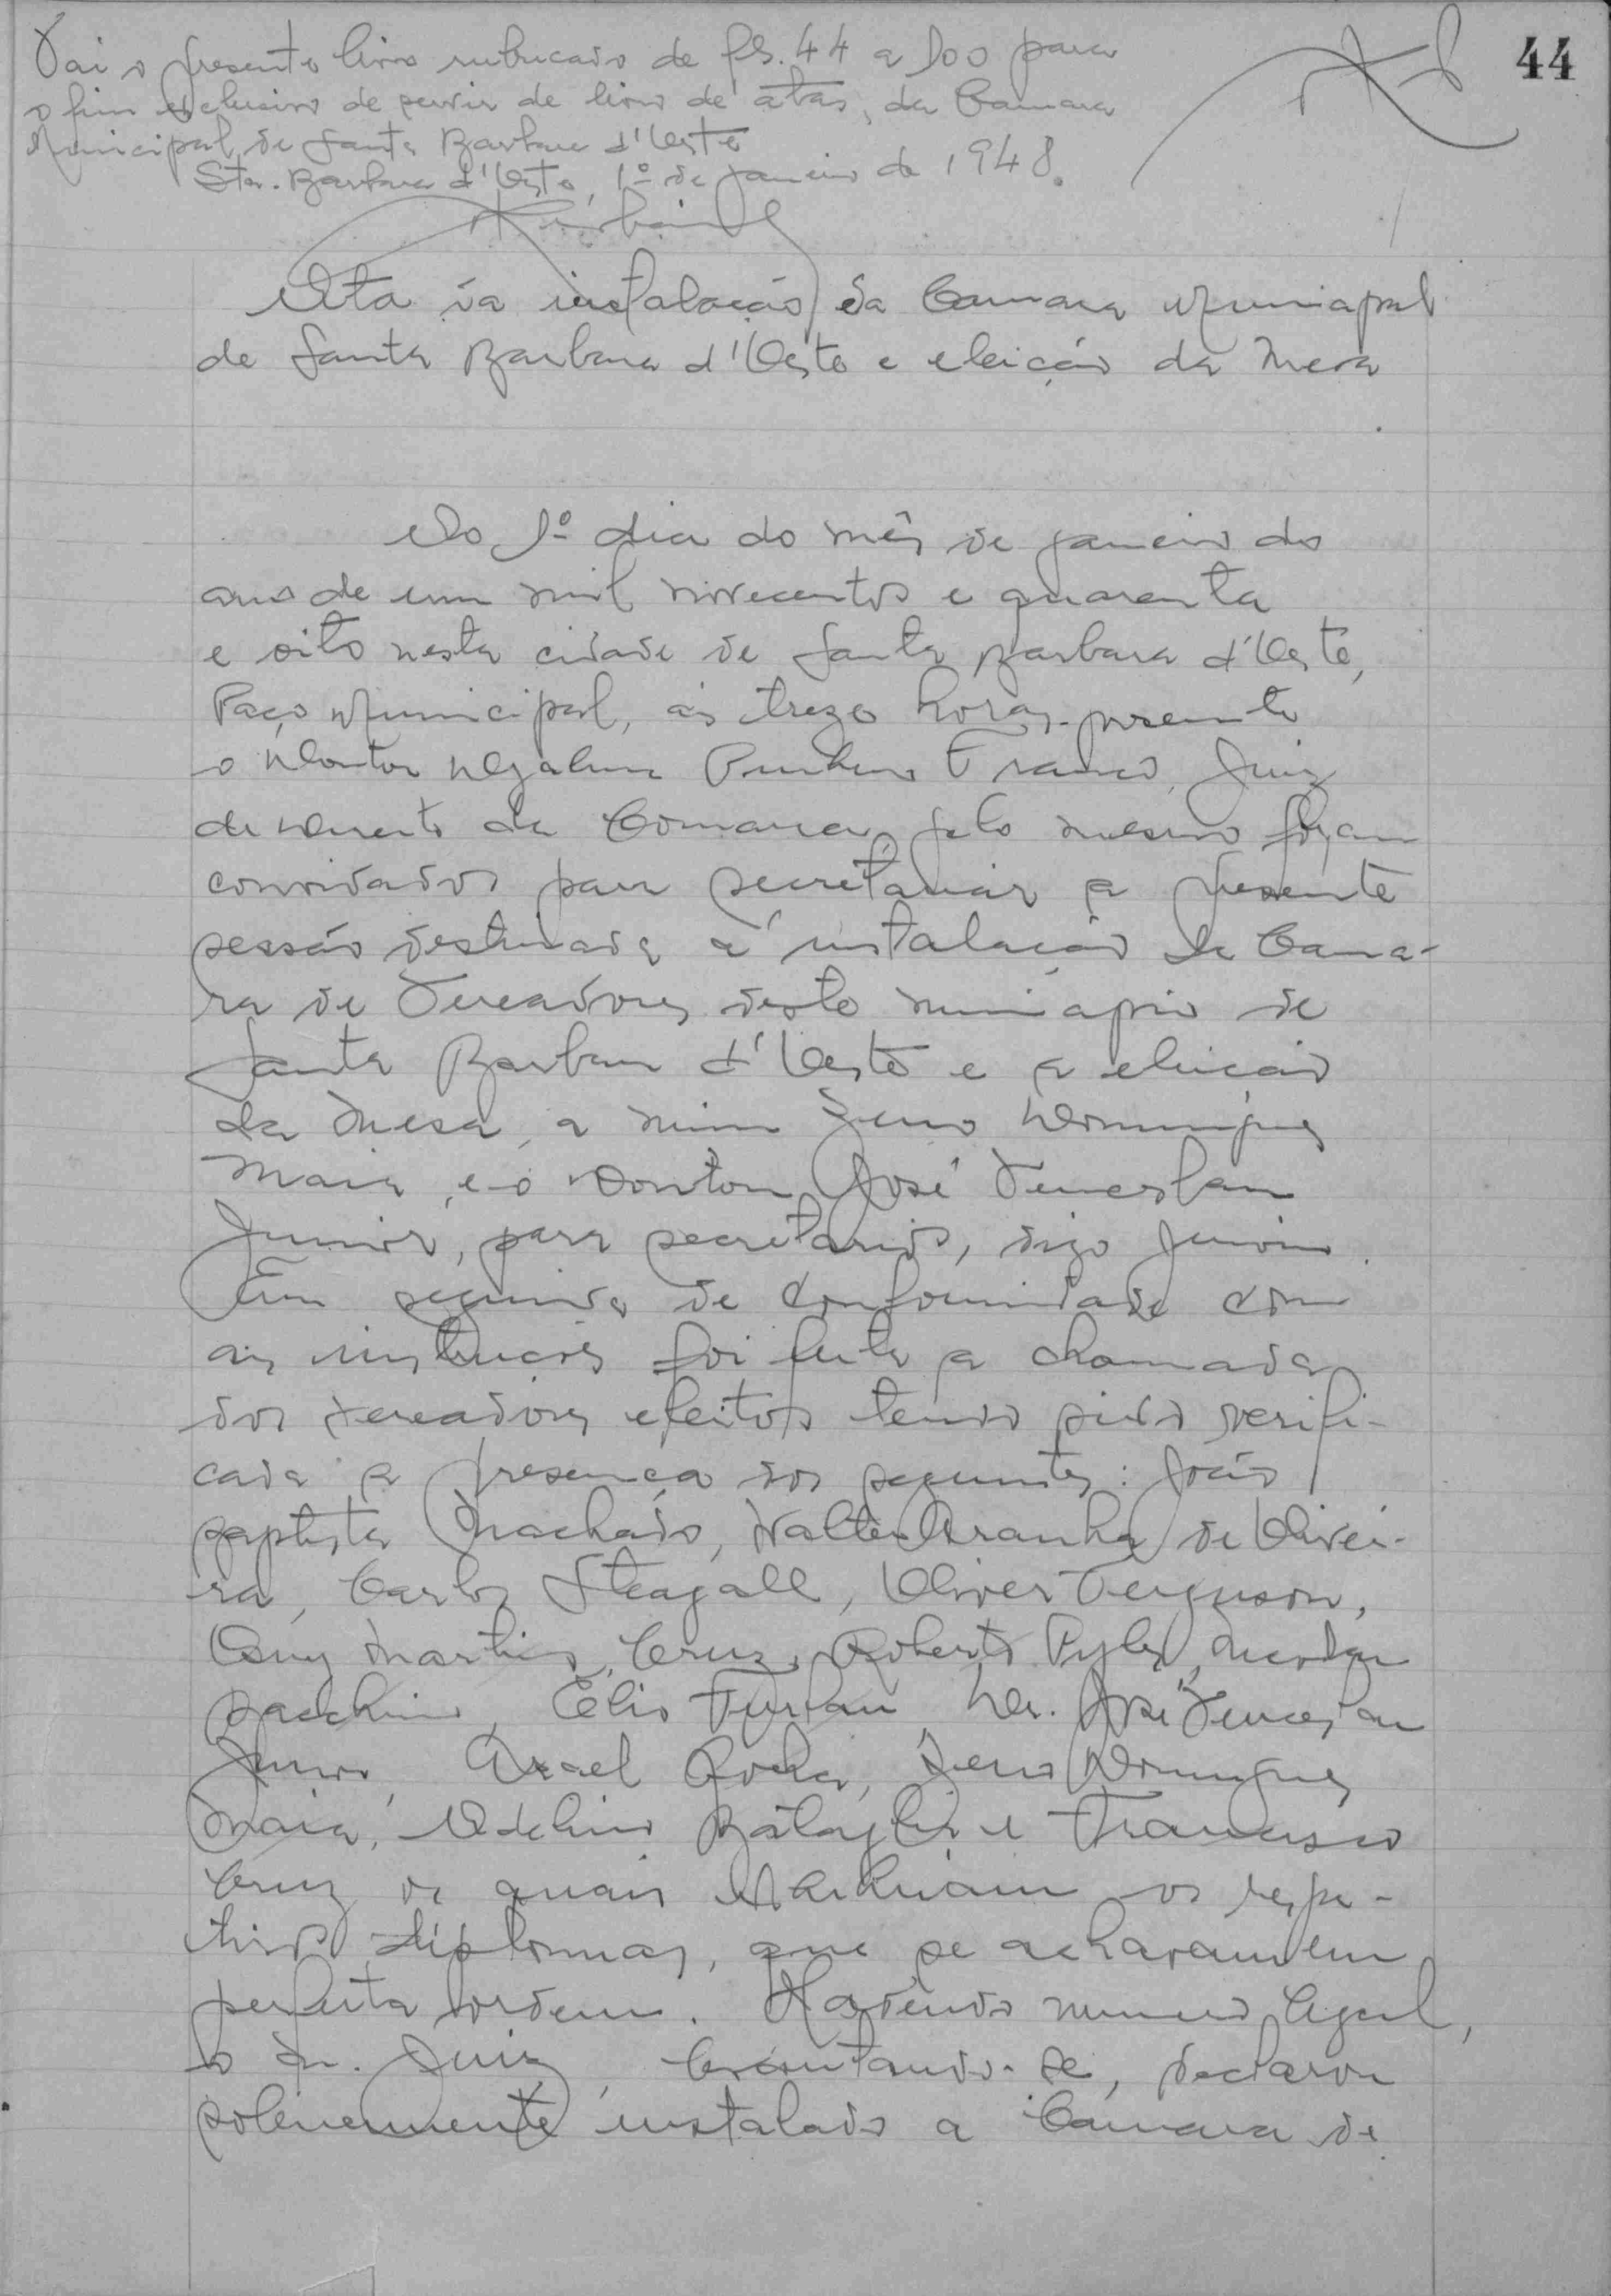 44
Vai o presente livro rubricado de fls. 44 a 100 para
o fim exclusivo de servir de livro de atas, da Camara
Municipal de Santa Barbara d'Oeste
Sta. Barbara d'Oeste, 1º de Janeiro de 1948.
Ata da instalação da Camara Municipal
de Santa Barbara d'Oeste e eleição da Mesa
Ao 1º dia do mês de janeiro do
ano de um mil novecentos e quarenta
e oito nesta cidade de Santa Barbara d'Oeste,
Paço Municipal, ás treze horas presente
o Doutor Djalma Pinheiro Franco, Juiz
de Direito da Comarca, pelo mesmo foram
convidados para secretariar a presente
sessão destinada a instalação da Cama-
ra de Vereadores deste municipio de
Santa Barbara d'Oeste e a eleição
da Mesa, a mim Zeno Domingues
Maia, e o Doutor José Venceslau
Junior, para secretarios, digo Junior.
Em seguida de conformidade com
as instruções foi feita a chamada
dos vereadores eleitos tendo sido verifi-
cada a presença dos seguintes: João
Baptista Machado, Walter Aranha de Olivei-
ra, Carlos Steagall, Oliver Ferguson,
Martins Cruz, Roberto Pyles, Nicolau
Sacchino, Elis Furlan, Dr. José Venceslau
Junior, Arael Rocha, Zeno Domingues
Maia, Adelino Bataglia e Francisco
Cruz os quais exhibiram os respe-
tivos diplomas, que se acharam em
perfeita ordem. Havendo numero legal,
o Sr. Juiz, levantando-se, declarou
solenemente instalado a Camara de